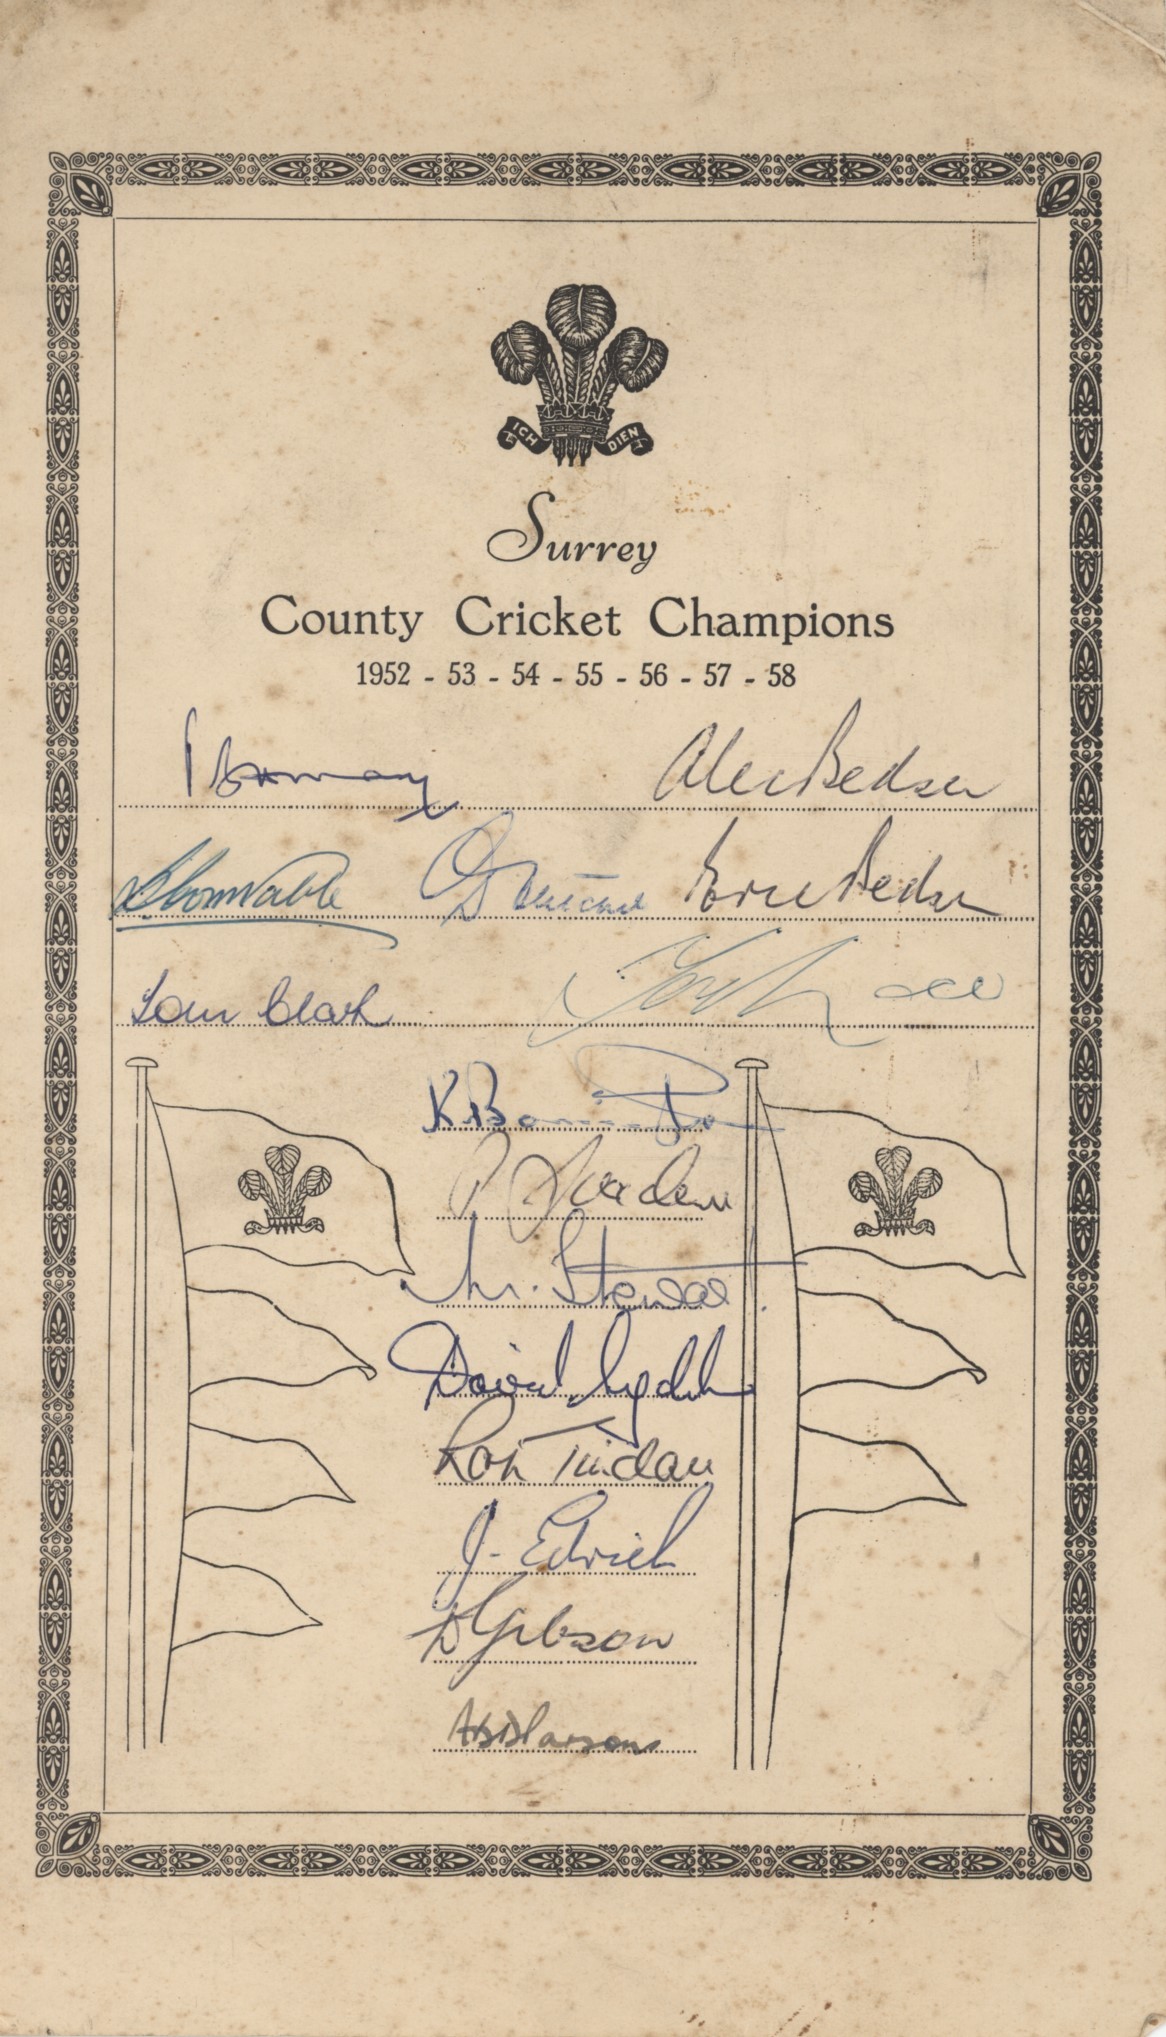 ICH DIEN
Surrey
County Cricket Champions
1952 - 53 - 54 - 55 - 56 - 57 - 58
P B H May Alec Bedser
Eric Bedser
Tom Clark
K Barrington
M. Stewart
David Sydenham
Ron Tindall
J. Edrich
D Gibson
A B D Parsons